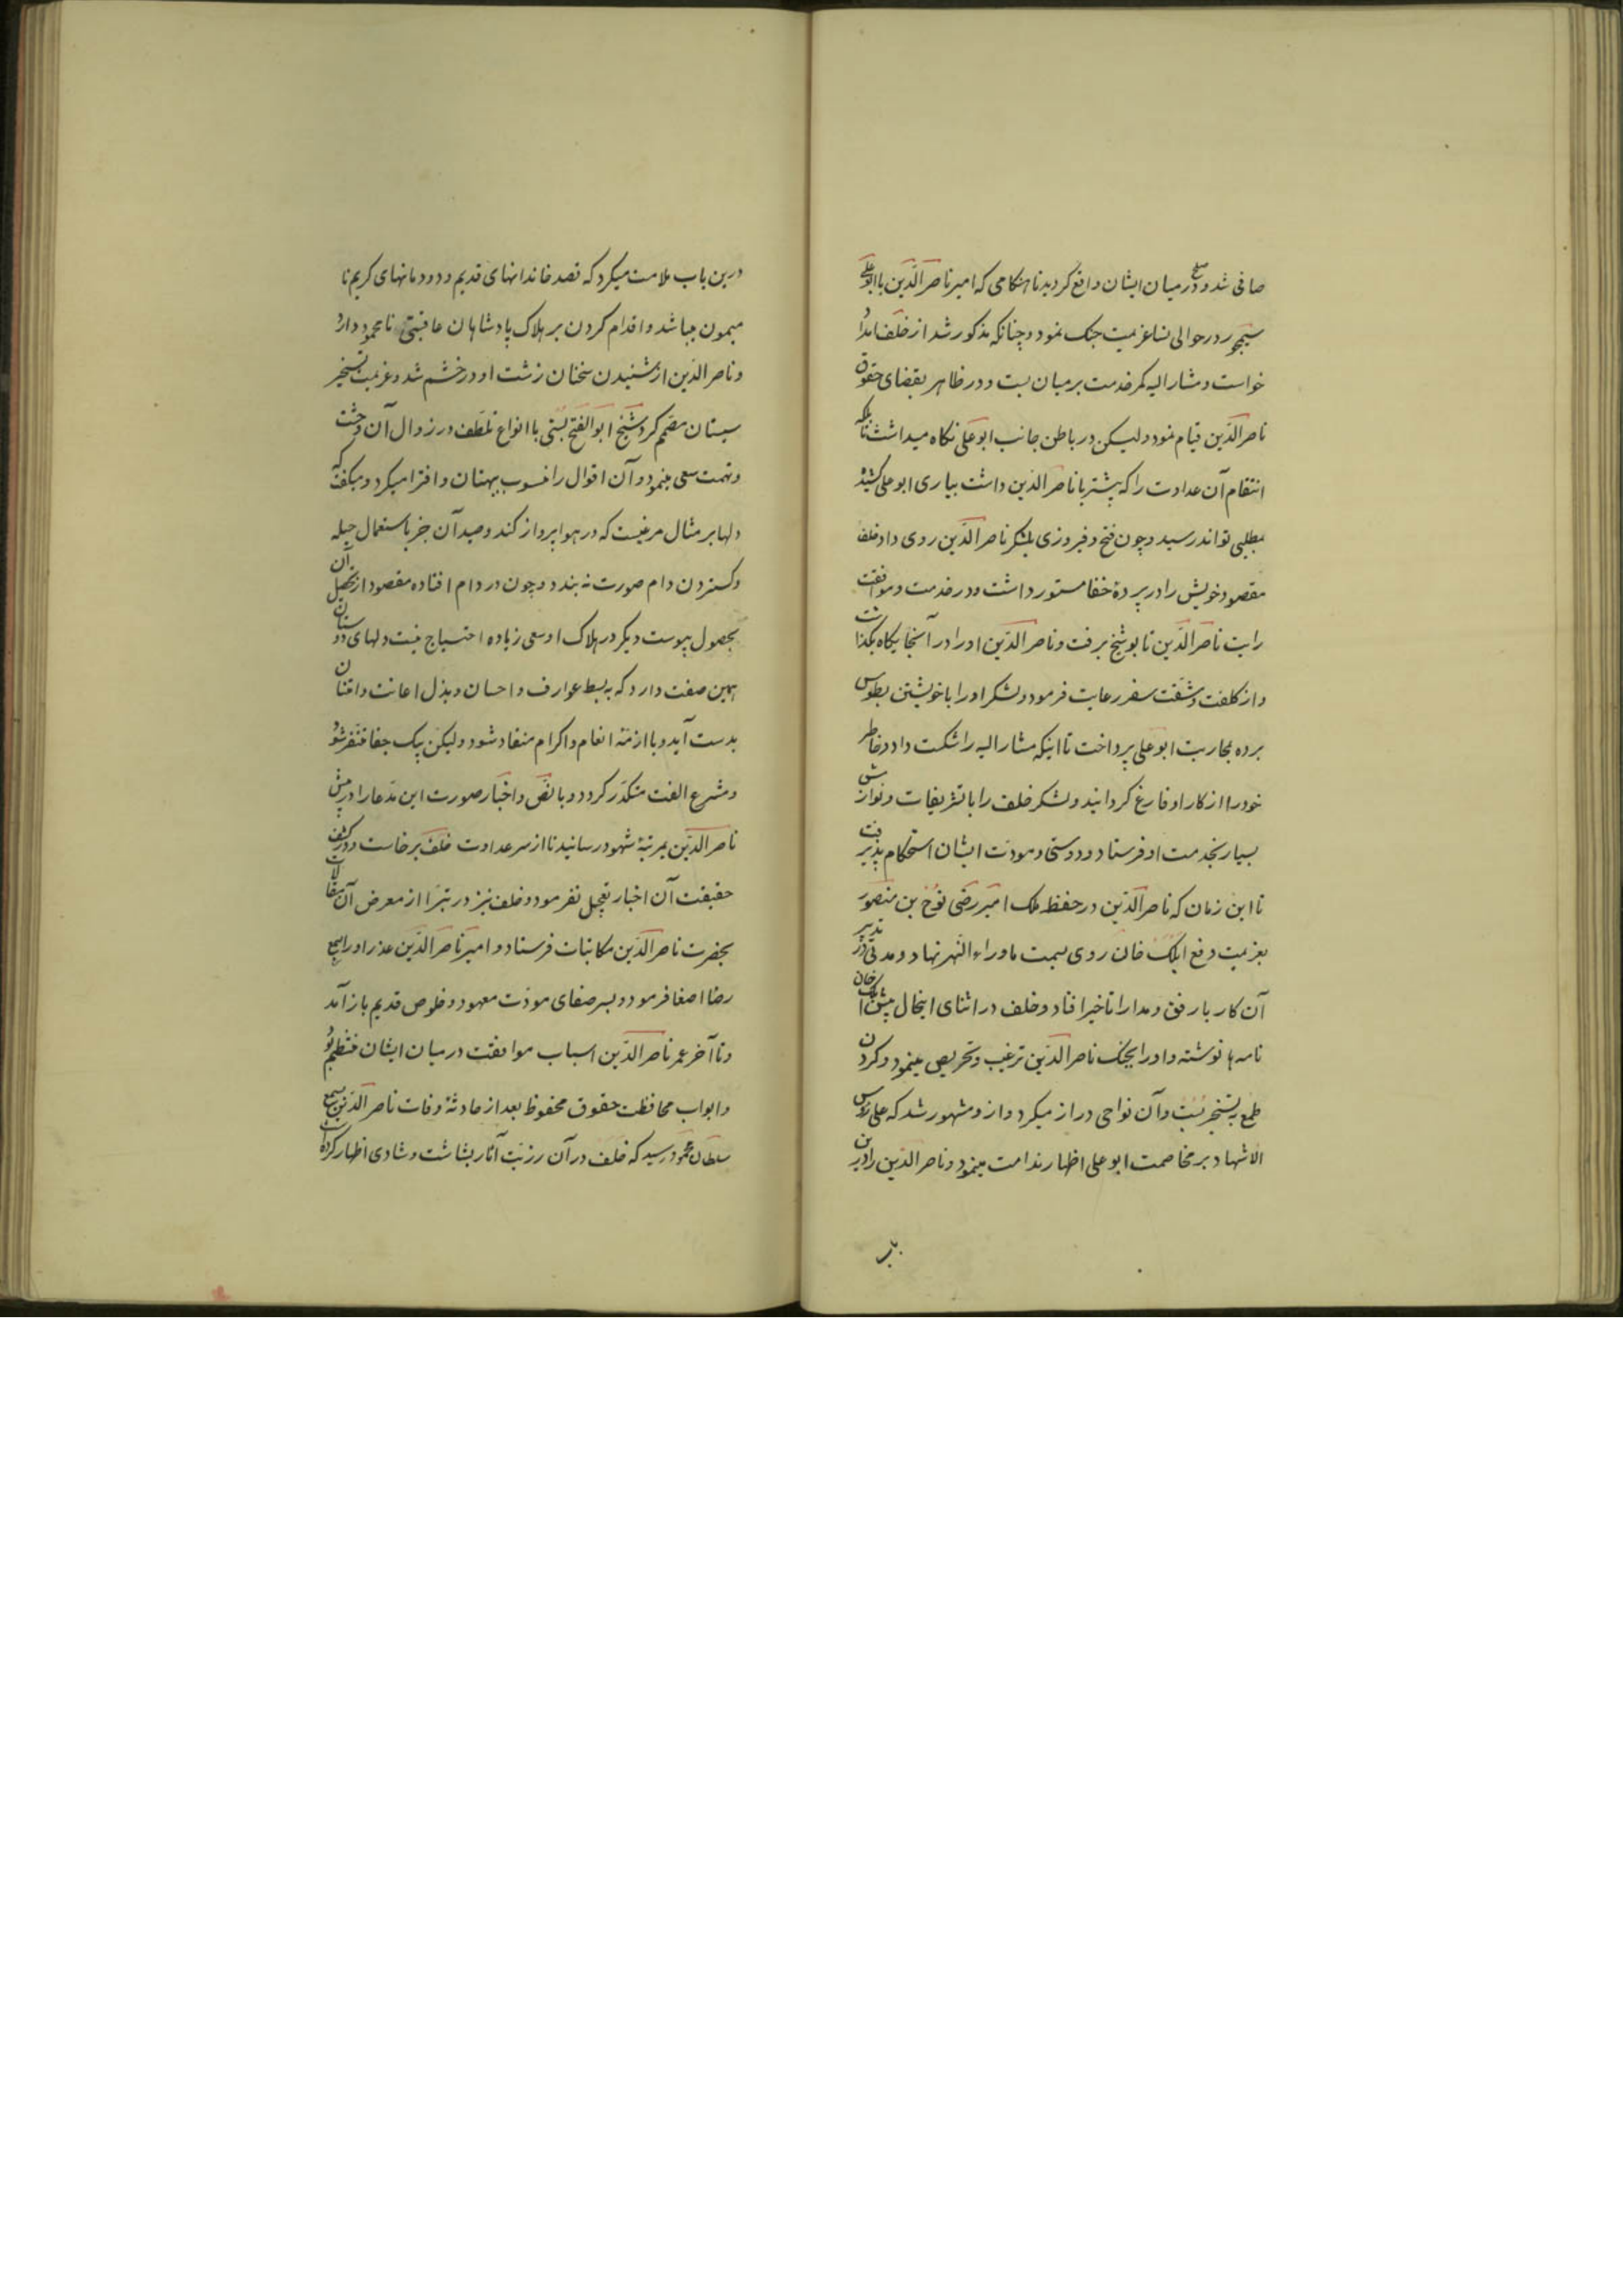 صافی شد و صلح در میان ایشان واقع کردید تا هنکامی که امیر ناصر الدّین با ابو علی
سیمجور در حوالی نسا عزیمت جنک نمود و چنانکه مذکور شد از خلف امداد
خواست و مشار الیه کمر خدمت بر میان بست و در ظاهر بقضای حقوق
ناصر الدّین قیام نمود و لیکن در باطن جانب ابو علی نکاه میداشت تا بلکه
انتقام آن عداوت را که پیشتر با ناصر الدّین داشت بیاری ابو علی کشیده
بمطلبی تواند رسید و چون فتح و فیروزی بلشکر ناصر الدّین روی داد خلف
مقصود خویش را در پردهٔ خفا مستور داشت و در خدمت و موافقت
رایت ناصر الدّین تا بوشنج برفت و ناصر الدّین او را در آنجایکاه بکذاشت
و از کلفت و مشقت سفر رعایت فرمود و لشکر او را با خویشتن بطوس
برده بمحاربت ابو علی پرداخت تا اینکه مشار الیه را شکست داد و خاطر
خود را از کار او فارغ کردانید و لشکر خلف را با تشریفات و نوازش
بسیار بخدمت او فرستاد و دوستی و مودت ایشان استحکام پذیرفت
تا این زمان که ناصر الدّین در حفظ ملک امیر رضی نوح بن منصور
بعزیمت دفع ایلک خان روی بسمت ماوراء النّهر نهاد و مدتی در تدبیر
آن کار با رفق و مدارا تاخیر افتاد و خلف در اثنای اینحال پیش ایلک خان
نامه ها نوشته و او را بجنک ناصر الدّین ترغیب و تحریص مینمود و کردن
طمع به تسخیر بُست و آن نواحی دراز میکرد و از و مشهور شد که علی رؤس
الاشهاد بر مخاصمت ابو علی اظهار ندامت مینمود و ناصر الدّین را درین
درین باب ملامت میکرد که قصد خاندانهای قدیم و دودمانهای کریم نا
میمون میباشد و اقدام کردن بر هلاک پادشاهان عاقبتی نا محمود دارد
و ناصر الدّین از شنیدن سخنان زشت او در خشم شد و عزیمت تسخیر
سیستان مصمّم کرد شیخ ابو الفتح بُستی با انواع تلطّف در زوال آن وحشت
و تهمت سعی مینمود و آن اقوال را منسوب ببهتان و افترا میکرد و میکفت که
دلها بر مثال مرغیست که در هوا پرواز کند و صید آن جز باستعمال حیله
و کستردن دام صورت نه بندد و چون در دام افتاده مقصود از تحصیل آن
بحصول پیوست دیکر در هلاک او سعی زیاده احتیاج نیست و لهای دوستان
همین صفت دارد که به بسط عوارف و احسان و بذل اعانت و امتنان
بدست آید و با ازمّهٔ انعام و اکرام منقاد شود و لیکن بیک جفا متنفّر شود
و مشرع الفت متکدّر کردد و با نصّ و اخبار صورت این مدّعا را در پیش
ناصر الدّین بمرتبهٔ شهود رسانید تا از سر عداوت خلف برخاست و در کشف
حقیقت آن اخبار تعجیل نفرمود و خلف نیز در تبرّا از معرض آن مقالات
بحضرت ناصر الدّین مکاتبات فرستاد و امیر ناصر الدّین عذر او را بسمع
رضا اصغا فرمود و بسر صفای مودّت معهود و خلوص قدیم باز آمد
و تا آخر عمر ناصر الدّین اسباب موافقت در میان ایشان منتظم بود
و ابواب محافظت حقوق محفوظ بعد از حادثهٔ وفات ناصر الدّین بسمع
سلطان محمود رسید که خلف در آن رزیّت آثار بشاشت و شادی اظهار کرده